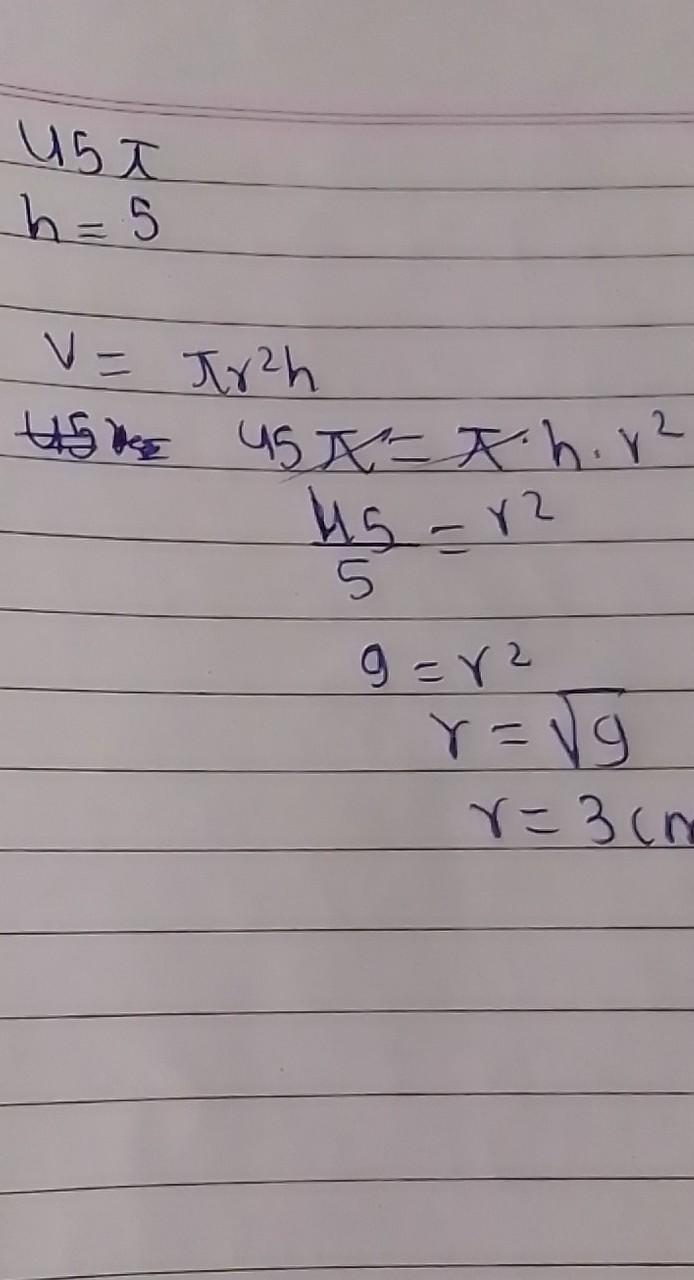 45π
h = 5
V = πr²h
45π = π · h · r²
45/5 = r²
9 = r²
r = √9
r = 3 cm